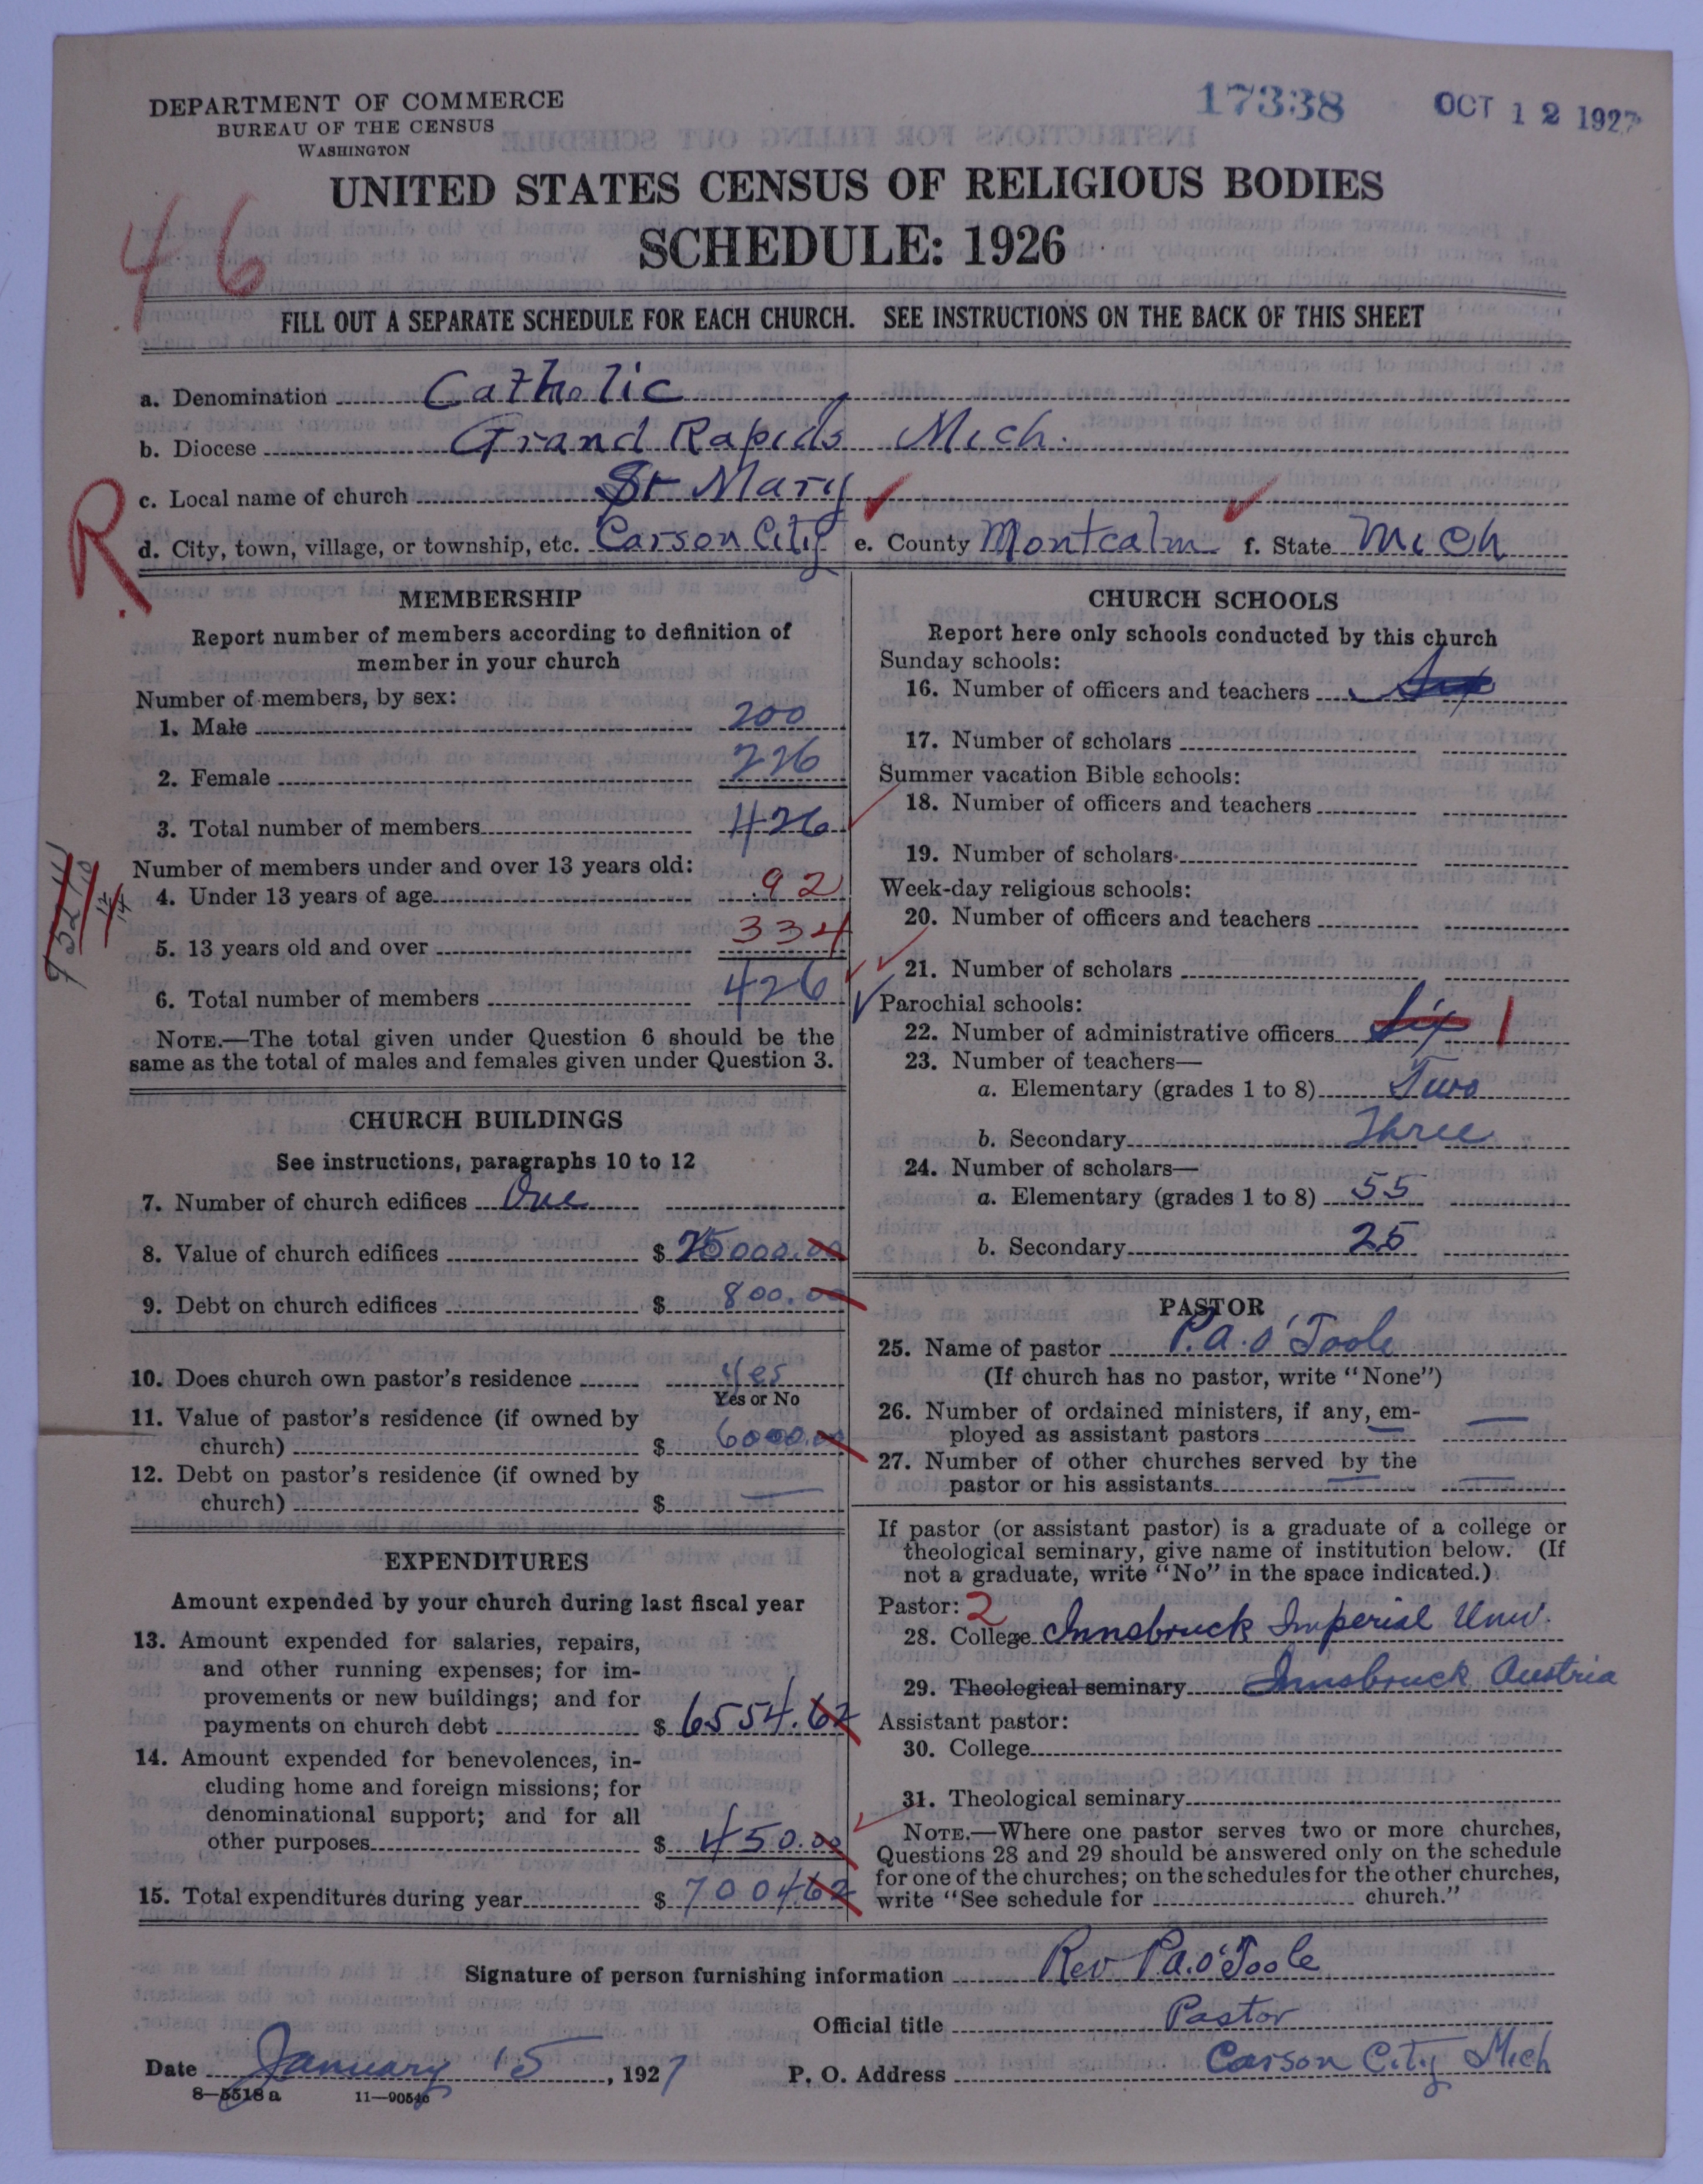 DEPARTMENT OF COMMERCE
BUREAU OF THE CENSUS
WASHINGTON
17338 OCT 12 1927
UNITED STATES CENSUS OF RELIGIOUS BODIES
SCHEDULE: 1926
46
FILL OUT A SEPARATE SCHEDULE FOR EACH CHURCH. SEE INSTRUCTIONS ON THE BACK OF THIS SHEET
a. Denomination Catholic
b. Diocese Grand Rapids Mich.
R
c. Local name of church St Mary
d. City, town, village, or township, etc. Carson City e. County Montcalm f. State Mich
MEMBERSHIP
Report number of members according to definition of
member in your church
Number of members, by sex:
1. Male 200
2. Female 226
3. Total number of members 426
Number of members under and over 13 years old:
4. Under 13 years of age 92
5. 13 years old and over 334
6. Total number of members 426
NOTE.—The total given under Question 6 should be the
same as the total of males and females given under Question 3.
CHURCH BUILDINGS
See instructions, paragraphs 10 to 12
7. Number of church edifices One
8. Value of church edifices $ 25000.00
9. Debt on church edifices $ 800.00
10. Does church own pastor's residence yes
Yes or No
11. Value of pastor's residence (if owned by
church) $ 6000.00
12. Debt on pastor's residence (if owned by
church) $ —
EXPENDITURES
Amount expended by your church during last fiscal year
13. Amount expended for salaries, repairs,
and other running expenses; for im-
provements or new buildings; and for
payments on church debt $ 6554.62
14. Amount expended for benevolences, in-
cluding home and foreign missions; for
denominational support; and for all
other purposes $ 450.00
15. Total expenditures during year $ 700462
CHURCH SCHOOLS
Report here only schools conducted by this church
Sunday schools:
16. Number of officers and teachers
17. Number of scholars
Summer vacation Bible schools:
18. Number of officers and teachers
19. Number of scholars
Week-day religious schools:
20. Number of officers and teachers
21. Number of scholars
Parochial schools:
22. Number of administrative officers Six 1
23. Number of teachers—
a. Elementary (grades 1 to 8) Two
b. Secondary Three
24. Number of scholars—
a. Elementary (grades 1 to 8) 55
b. Secondary 25
PASTOR
25. Name of pastor P.A. O'Toole
(If church has no pastor, write "None")
26. Number of ordained ministers, if any, em-
ployed as assistant pastors —
27. Number of other churches served by the
pastor or his assistants —
If pastor (or assistant pastor) is a graduate of a college or
theological seminary, give name of institution below. (If
not a graduate, write "No" in the space indicated.)
Pastor: 2
28. College Innsbruck Imperial Univ.
29. Theological seminary Innsbruck Austria
Assistant pastor:
30. College
31. Theological seminary
NOTE.—Where one pastor serves two or more churches,
Questions 28 and 29 should be answered only on the schedule
for one of the churches; on the schedules for the other churches,
write "See schedule for church."
Signature of person furnishing information Rev P.A. O'Toole
Official title Pastor
Date January 15, 1927 P. O. Address Carson City Mich
8—5518 a 11—90546